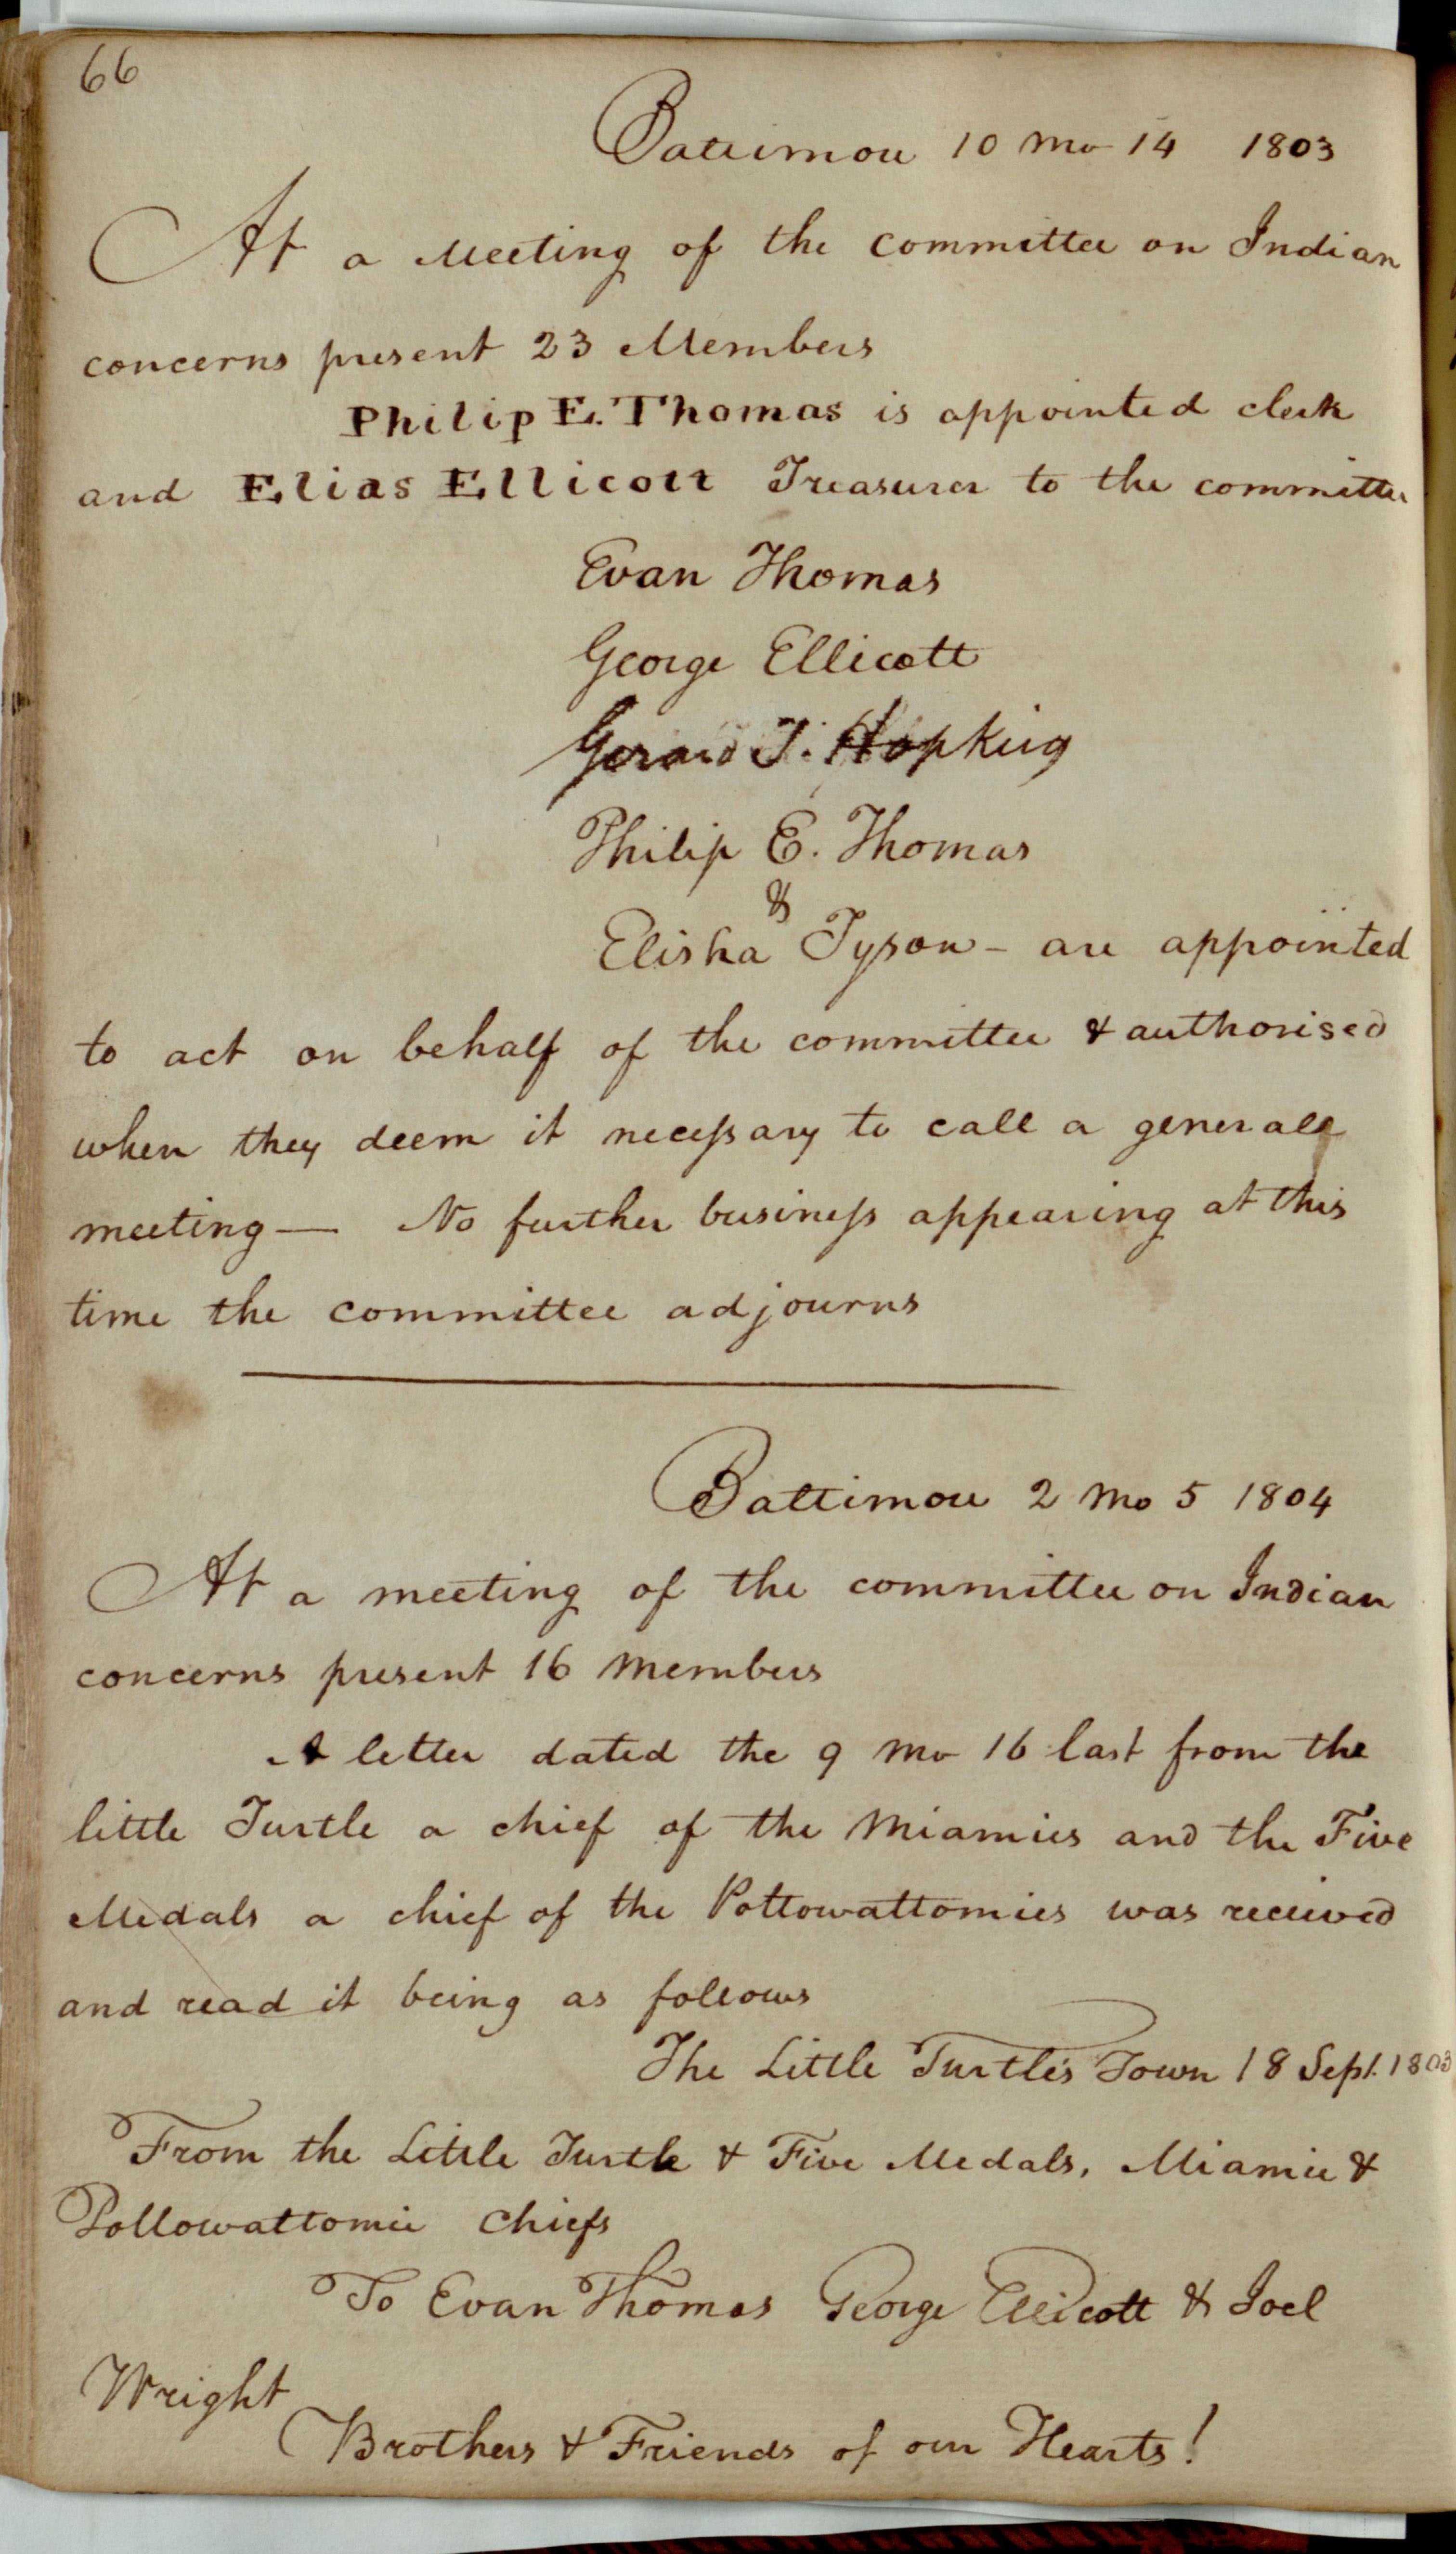 66
Baltimore 10 mo 14 1803
At a Meeting of the committee on Indian
concerns present 23 Members
Philip E. Thomas is appointed clerk
and Elias Ellicott Treasurer to the committee
Evan Thomas
George Ellicott
Gerard T. Hopkins
Philip E. Thomas
&
Elisha Tyson - are appointed
to act on behalf of the committee & authorised
when they deem it necessary to call a generall
meeting — No further business appearing at this
time the committee adjourns
Baltimore 2 mo 5 1804
At a meeting of the committee on Indian
concerns present 16 members
A letter dated the 9 mo 16 last from the
little Turtle a chief of the Miamies and the Five
Medals a chief of the Pottowattomies was received
and read it being as follows
The Little Turtle's Town 18 Sept. 1803
From the Little Turtle & Five Medals, Miamie &
Pottowattomie chiefs
To Evan Thomas George Ellicott & Joel
Wright
Brothers & Friends of our Hearts!